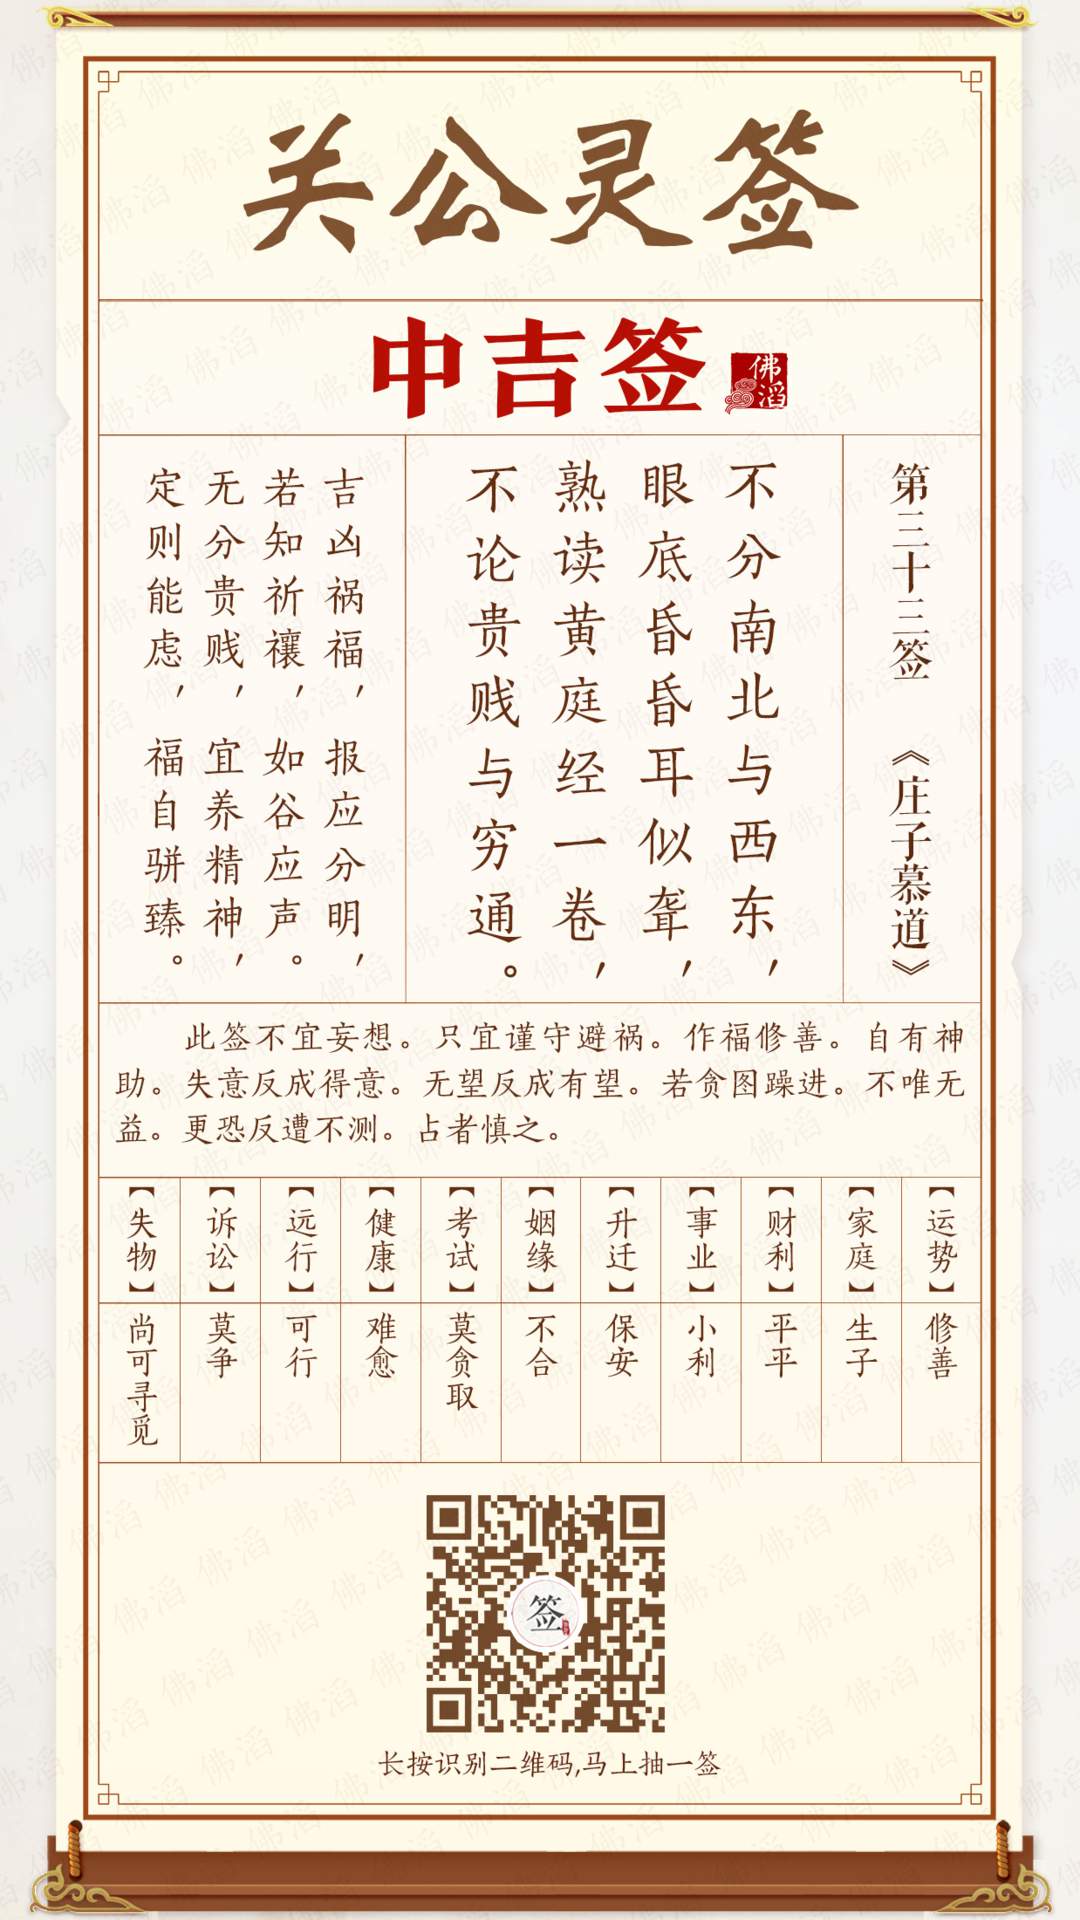 关公灵签
中吉签
佛滔
第三十三签 《庄子慕道》
不分南北与西东，
眼底昏昏耳似聋，
熟读黄庭经一卷，
不论贵贱与穷通。
吉凶祸福，报应分明，
若知祈禳，如谷应声。
无分贵贱，宜养精神，
定则能虑，福自骈臻。
此签不宜妄想。只宜谨守避祸。作福修善。自有神
助。失意反成得意。无望反成有望。若贪图躁进。不唯无
益。更恐反遭不测。占者慎之。
【运势】修善
【家庭】生子
【财利】平平
【事业】小利
【升迁】保安
【姻缘】不合
【考试】莫贪取
【健康】难愈
【远行】可行
【诉讼】莫争
【失物】尚可寻觅
签
长按识别二维码,马上抽一签